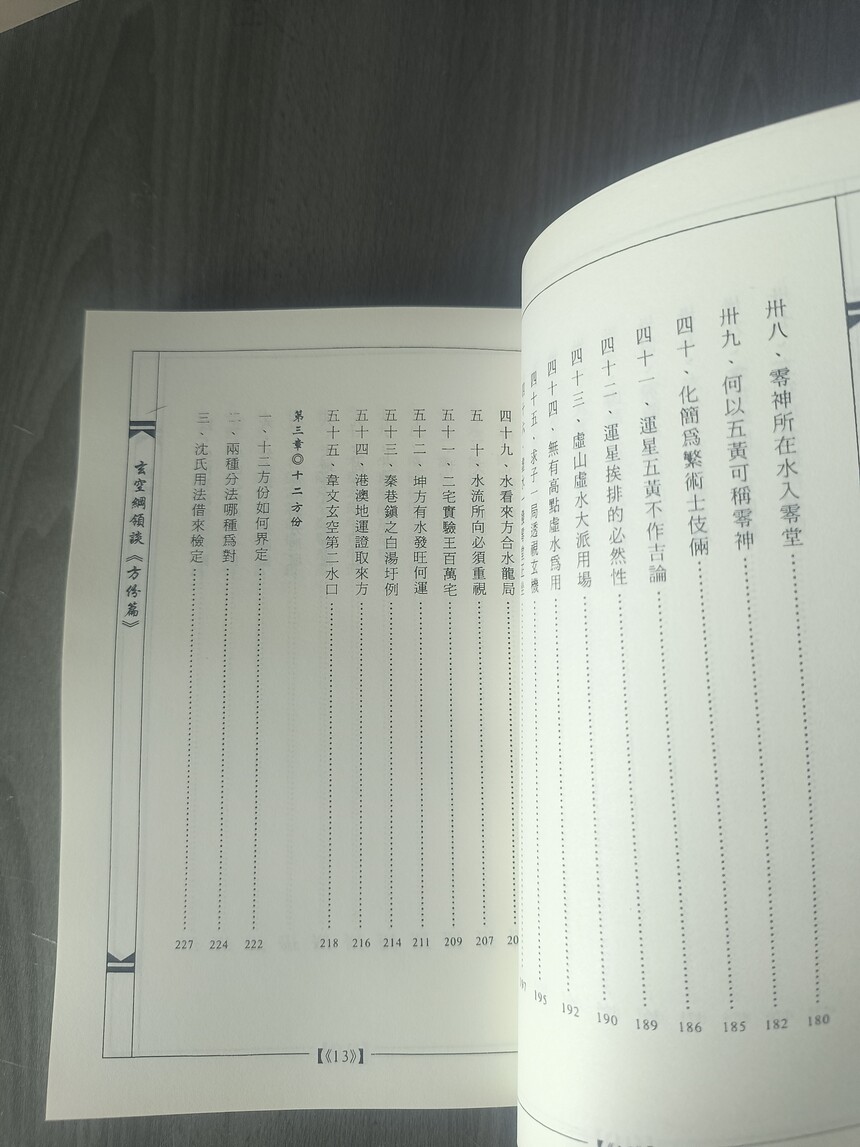 卅八、零神所在水入零堂 180
卅九、何以五黃可稱零神 182
四十、化簡爲繁術士伎倆 185
四十一、運星五黃不作吉論 186
四十二、運星挨排的必然性 189
四十三、虛山虛水大派用場 190
四十四、無有高點虛水爲用 192
四十五、求子一局透視玄機 195
四十九、水看來方合水龍局
五十、水流所向必須重視 207
五十一、二宅實驗王百萬宅 209
五十二、坤方有水發旺何運 211
五十三、秦巷鎮之白湯圩例 214
五十四、港澳地運證取來方 216
五十五、韋文玄空第二水口 218
第三章◎十二方份
一、十二方份如何界定 222
二、兩種分法哪種爲對 224
三、沈氏用法借來檢定 227
玄空綱領談《方份篇》
【《13》】